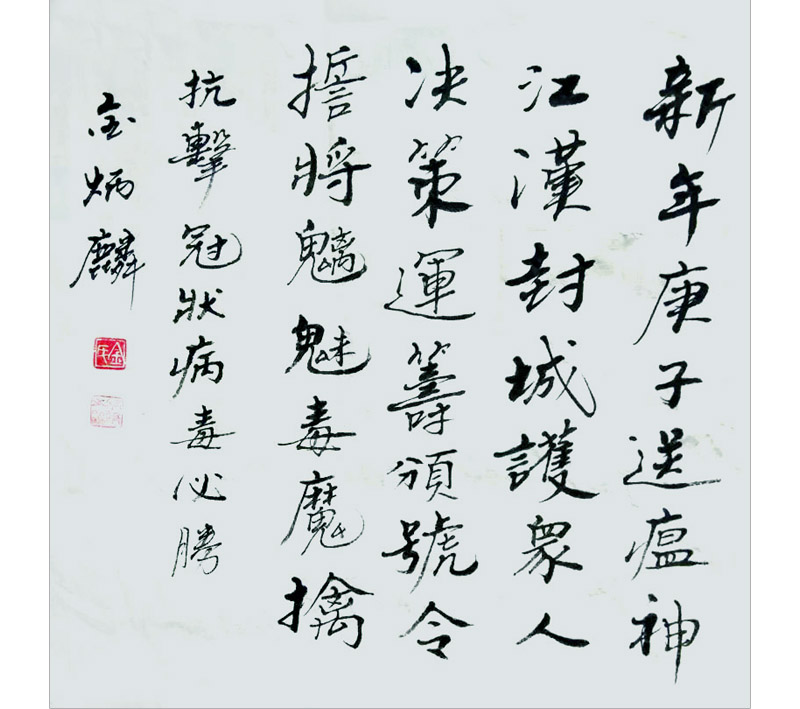 新年庚子送瘟神
江漢封城護衆人
决策運籌頒號令
擔將魑魅毒魔擒
抗擊冠狀病毒必勝
金炳麟